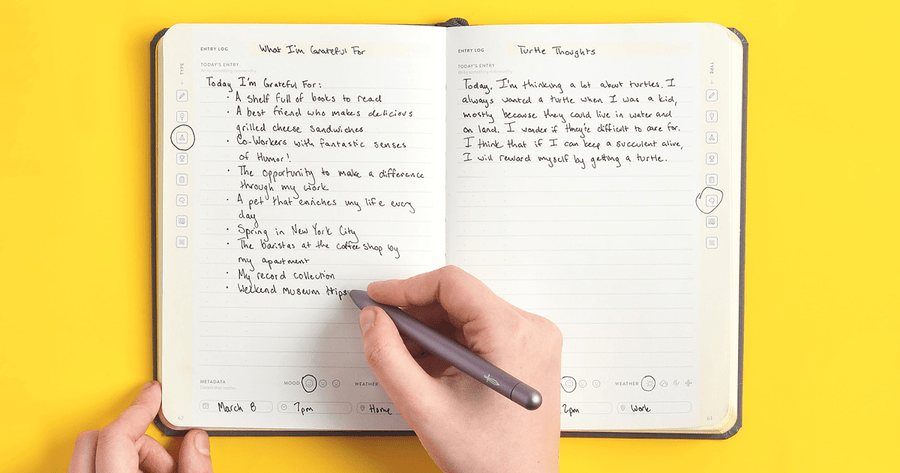 ENTRY LOG
What I'm Grateful For
TODAY'S ENTRY
TYPE
Today I'm Grateful For:
· A shelf full of books to read
· A best friend who makes delicious
grilled cheese sandwiches
· Co-Workers with fantastic senses
of Humor!
· The opportunity to make a difference
through my work
· A pet that enriches my life every
day
· Spring in New York City
· The baristas at the coffee shop by
my apartment
· My record collection
· Weekend Museum trips
METADATA
MOOD
WEATHER
March 8
7pm
Home
ENTRY LOG
Turtle Thoughts
TODAY'S ENTRY
TYPE
Today, I'm thinking a lot about turtles. I
always wanted a turtle when I was a kid,
mostly because they could live in water and
on land. I wonder if they're difficult to care for.
I think that if I can keep a succulent alive,
I will reward myself by getting a turtle.
WEATHER
2pm
Work